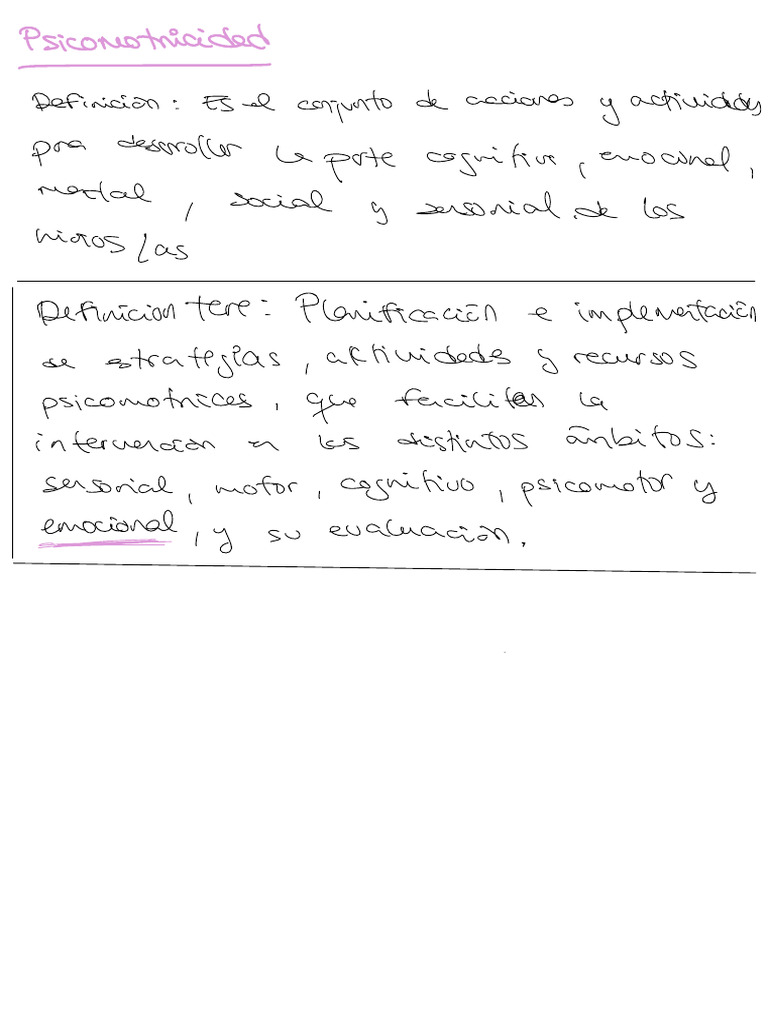 Psicomotricidad
Definición: Es el conjunto de acciones y actividades
para desarrollar la parte cognitiva, emocional,
mental, social y sensorial de los
niños/as
Definicion tere: Planificación e implementación
de estrategias, actividades y recursos
psicomotrices, que faciliten la
intervención en los distintos ámbitos:
sensorial, motor, cognitivo, psicomotor y
emocional, y su evaluación.